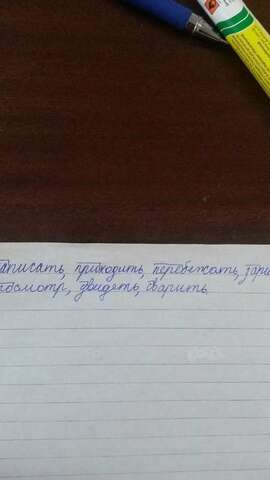 аписать, приходить, перебежать,
осмотр, увидеть, сварить